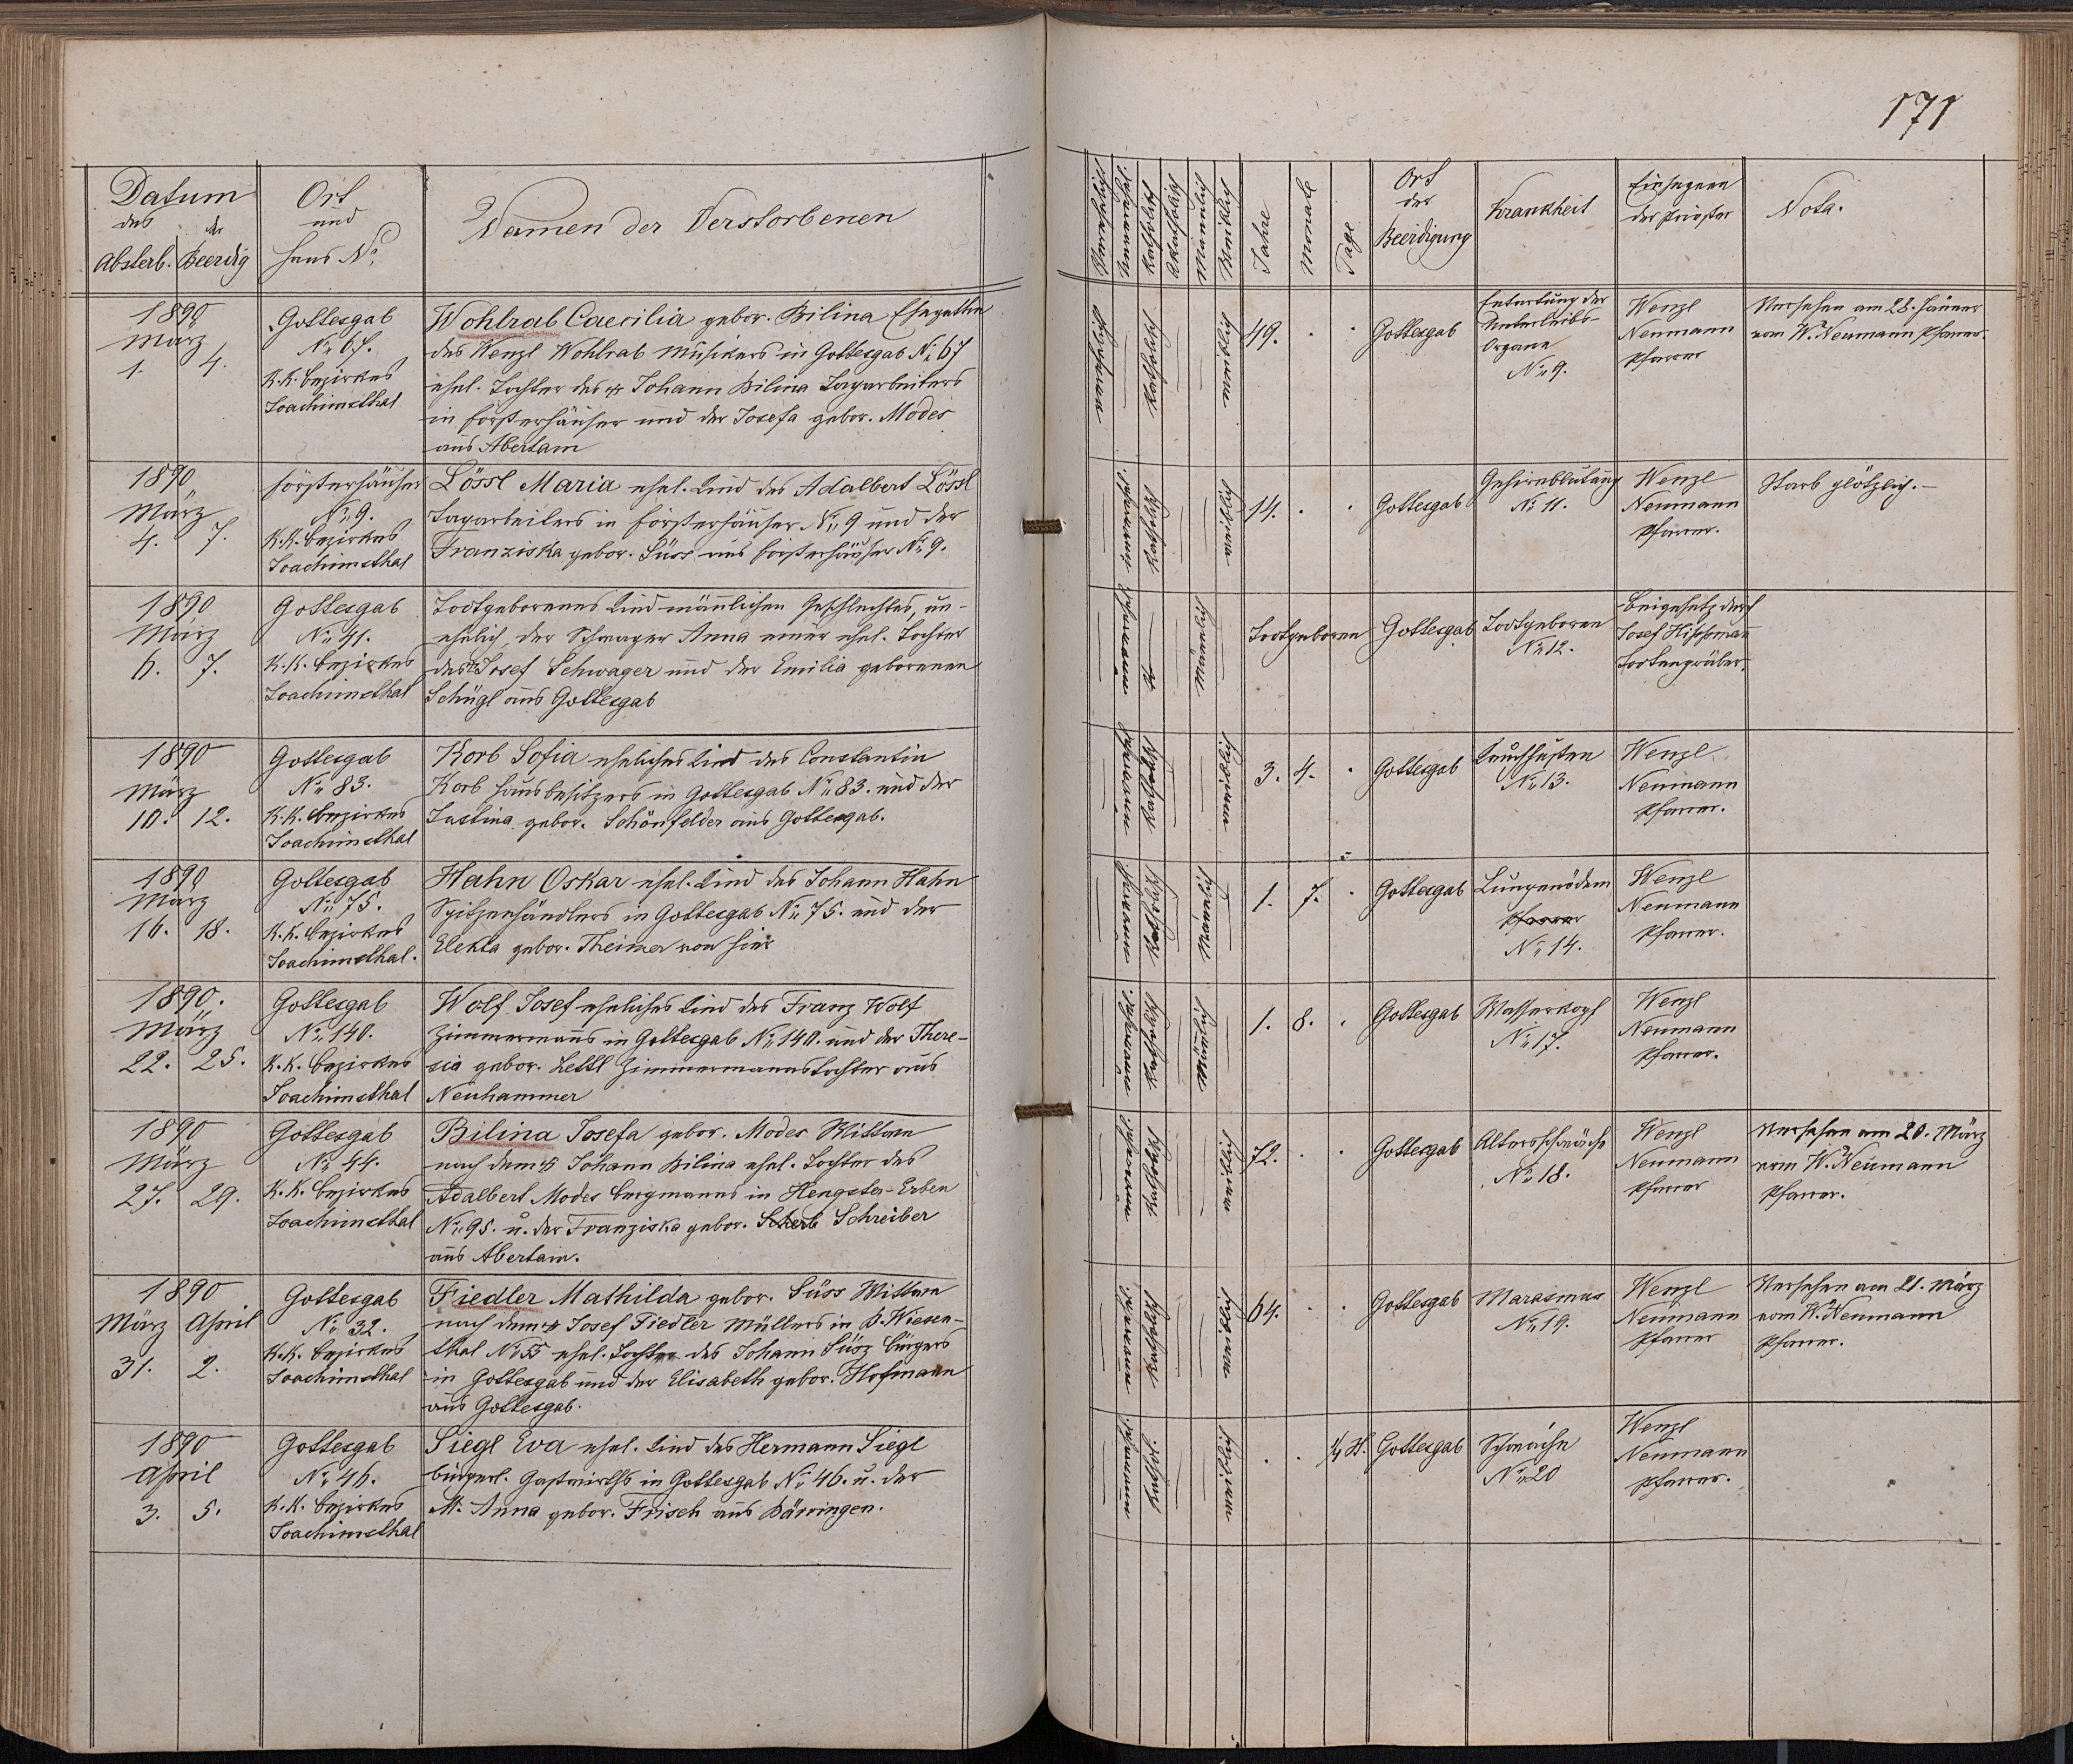 171
Datum
des
der
Absterb.
Beerdig
Ort
und
Haus No.
Namen der Verstorbenen
Katholisch
Akatholisch
Männlich
Weiblich
Jahre
Monate
Tage
Ort
der
Beerdigung
Krankheit
Einsegnen
der Priester
Nota.
1890
März
1. 4.
Gottesgab
No. 67.
K. K. Bezirkes
Joachimsthal
Wohlrab Caecilia gebor. Bilina Ehegattin
des Wenzl Wohlrab Musikers in Gottesgab No. 67
ehel. Tochter des Johann Bilina Tagarbeiters
in Försterhäuser und der Josefa gebor. Modes
aus Abertam
katholisch
weiblich
49. . .
Gottesgab
Entartung der
Unterleibs-
Organe
No. 9.
Wenzl
Neumann
Pfarrer
Versehen am 28. Jänner
vom W. Neumann Pfarrer.
1890
März
4. 7.
Försterhäuser
No. 9.
K. K. Bezirkes
Joachimsthal
Lössl Maria ehel. Kind des Adalbert Lössl
Tagarbeiters in Försterhäuser No. 9 und der
Franziska gebor. Süss aus Försterhäuser No. 9.
katholisch
weiblich
14. . .
Gottesgab
Gehirnblutung
No 11.
Wenzl
Neumann
Pfarrer.
Starb plötzlich. –
1890
März
6. 7.
Gottesgab
No. 41.
K. K. Bezirkes
Joachimsthal
Todtgeborenes Kind männlichen Geschlechtes, un-
ehelich, der Schwager Anna einer ehel. Tochter
des Josef Schwager und der Emilia geborenen
Schügl aus Gottesgab
männlich
Todtgeboren
Gottesgab
Todtgeboren
No. 12.
Beigesetz durch
Josef Hippmann
Todtengräber.
1890
März
10. 12.
Gottesgab
No. 83.
K. K. Bezirkes
Joachimsthal
Korb Sofia eheliches Kind des Constantin
Korb Hausbesitzers in Gottesgab No. 83. und der
Justina gebor. Schönfelder aus Gottesgab.
katholisch
weiblich
3. 4. .
Gottesgab
Keuchhusten
No. 13.
Wenzl
Neumann
Pfarrer.
1890
März
16. 18.
Gottesgab
No. 75.
K. K. Bezirkes
Joachimsthal.
Hahn Oskar ehel. Kind des Johann Hahn
Spitzenhändlers in Gottesgab No. 75. und der
Elekta gebor. Theimer von hier
katholisch
männlich
1. 7. .
Gottesgab
Lungenödem
Pfarrer
No. 14.
Wenzl
Neumann
Pfarrer.
1890.
März
22. 25.
Gottesgab
No. 140.
K. K. Bezirkes
Joachimsthal
Wolf Josef eheliches Kind des Franz Wolf
Zimmermanns in Gottesgab No. 140. und der There-
sia gebor. Lettl Zimmermannstochter aus
Neuhammer
katholisch
männlich
1. 8. .
Gottesgab
Wasserkopf
No. 17.
Wenzl
Neumann
Pfarrer.
1890
März
27. 29.
Gottesgab
No. 44.
K. K. Bezirkes
Joachimsthal
Bilina Josefa gebor. Modes Wittwe
nach dem Johann Bilina ehel. Tochter des
Adalbert Modes Bergmanns in Hengster-Erben
No. 95. u. der Franziska gebor. Scherb Schreiber
aus Abertam.
katholisch
weiblich
72. . .
Gottesgab
Altersschwäche
No. 18.
Wenzl
Neumann
Pfarrer
Versehen am 20. März
vom W. Neumann
Pfarrer.
1890
März April
31. 2.
Gottesgab
No. 32.
K. K. Bezirkes
Joachimsthal
Fiedler Mathilda gebor. Süss Wittwe
nach dem Josef Fiedler Müllers in B. Wiesen-
thal No. 55 ehel. Tochter des Johann Süsz Bürgers
in Gottesgab und der Elisabeth gebor. Hofmann
aus Gottesgab.
katholisch
weiblich
64. . .
Gottesgab
Marasmus
No. 19.
Wenzl
Neumann
Pfarrer
Versehen am 21. März
vom W. Neumann
Pfarrer.
1890
April
3. 5.
Gottesgab
No. 46.
K. K. Bezirkes
Joachimsthal
Siegl Eva ehel. Kind des Hermann Siegl
bürgerl. Gastwirths in Gottesgab No. 46. u. der
M. Anna gebor. Frisch aus Bärringen.
kathol.
weiblich
. . ¼ St.
Gottesgab
Schwäche
No. 20
Wenzl
Neumann
Pfarrer.